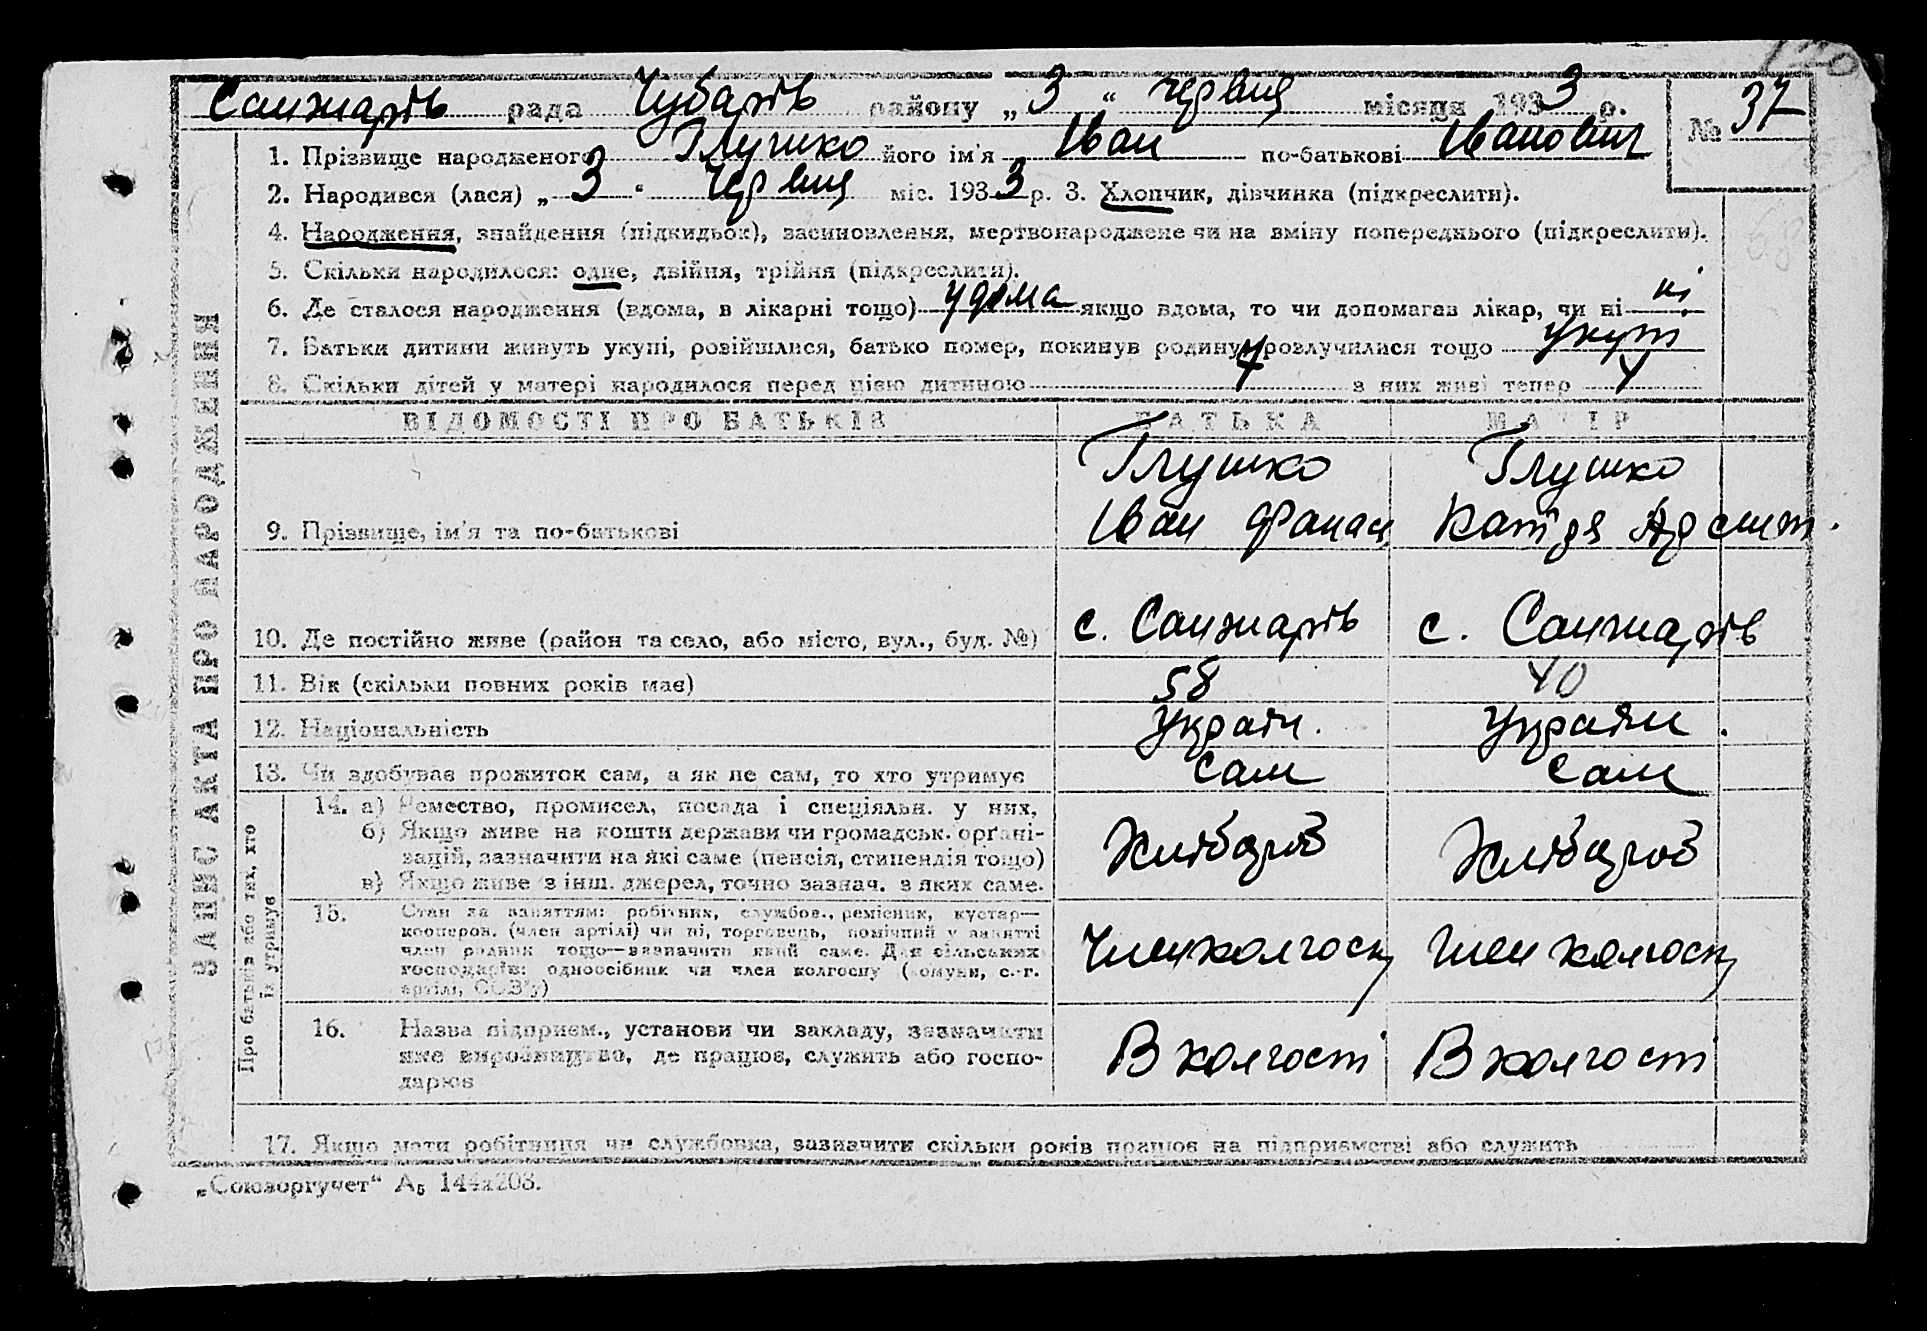 Санжарів рада Чубарів району „3“ червця місяця 1933 р. № 37
1. Прізвище народженого Глушко його ім'я Іван по-батькові Іванович
2. Народився (лася) „3“ червця міс. 1933 р. 3. Хлопчик, дівчинка (підкреслити).
4. Народження, знайдення (підкидьок), засиновлення, мертвонароджене чи на зміну попереднього (підкреслити).
5. Скільки народилося: одне, двійня, трійня (підкреслити).
6. Де сталося народження (вдома, в лікарні тощо) удома якщо вдома, то чи допомагав лікар, чи ні ні
7. Батьки дитини живуть укупі, розійшлися, батько помер, покинув родину, розлучилися тощо укупі
8. Скільки дітей у матері народилося перед цією дитиною 7 з них живі тепер 4
ЗАПИС АКТА ПРО НАРОДЖЕННЯ
ВІДОМОСТІ ПРО БАТЬКІВ БАТЬКА МАТІР
Глушко Глушко
9. Прізвище, ім'я та по-батькові Іван Фанас
10. Де постійно живе (район та село, або місто, вул., буд. №) с. Санжарів с. Санжарів
11. Вік (скільки повних років має) 58 40
12. Національність україн. україн.
13. Чи здобуває прожиток сам, а як не сам, то хто утримує сам сам
Про батьків або тих, хто
їх утримує
14. а) Ремество, промисел, посада і спеціяльн. у них,
б) Якщо живе на кошти держави чи громадськ. орґані-
зацій, зазначити на які саме (пенсія, стипендія тощо) Хлібороб Хлібороб
в) Якщо живе з інш. джерел, точно зазнач. з яких саме.
15. Стан за заняттям: робітник, службов., ремісник, кустар—
кооперов. (член артілі) чи ні, торговець, помічний у занятті
член родини тощо—зазначити який саме. Для сільських Член колгосп Член колгосп
господарів: одноосібник чи член колгоспу (комуни, с.-г.
артілі, СОЗ'у)
16. Назва підприєм., установи чи закладу, зазначити
яке виробництво, де працює, служить або госпо- В колгоспі В колгоспі
дарює
17. Якщо мати робітниця чи службовка, зазначити скільки років працює на підприємстві або служить
„Союзоргучет“ А₅ 144х203.